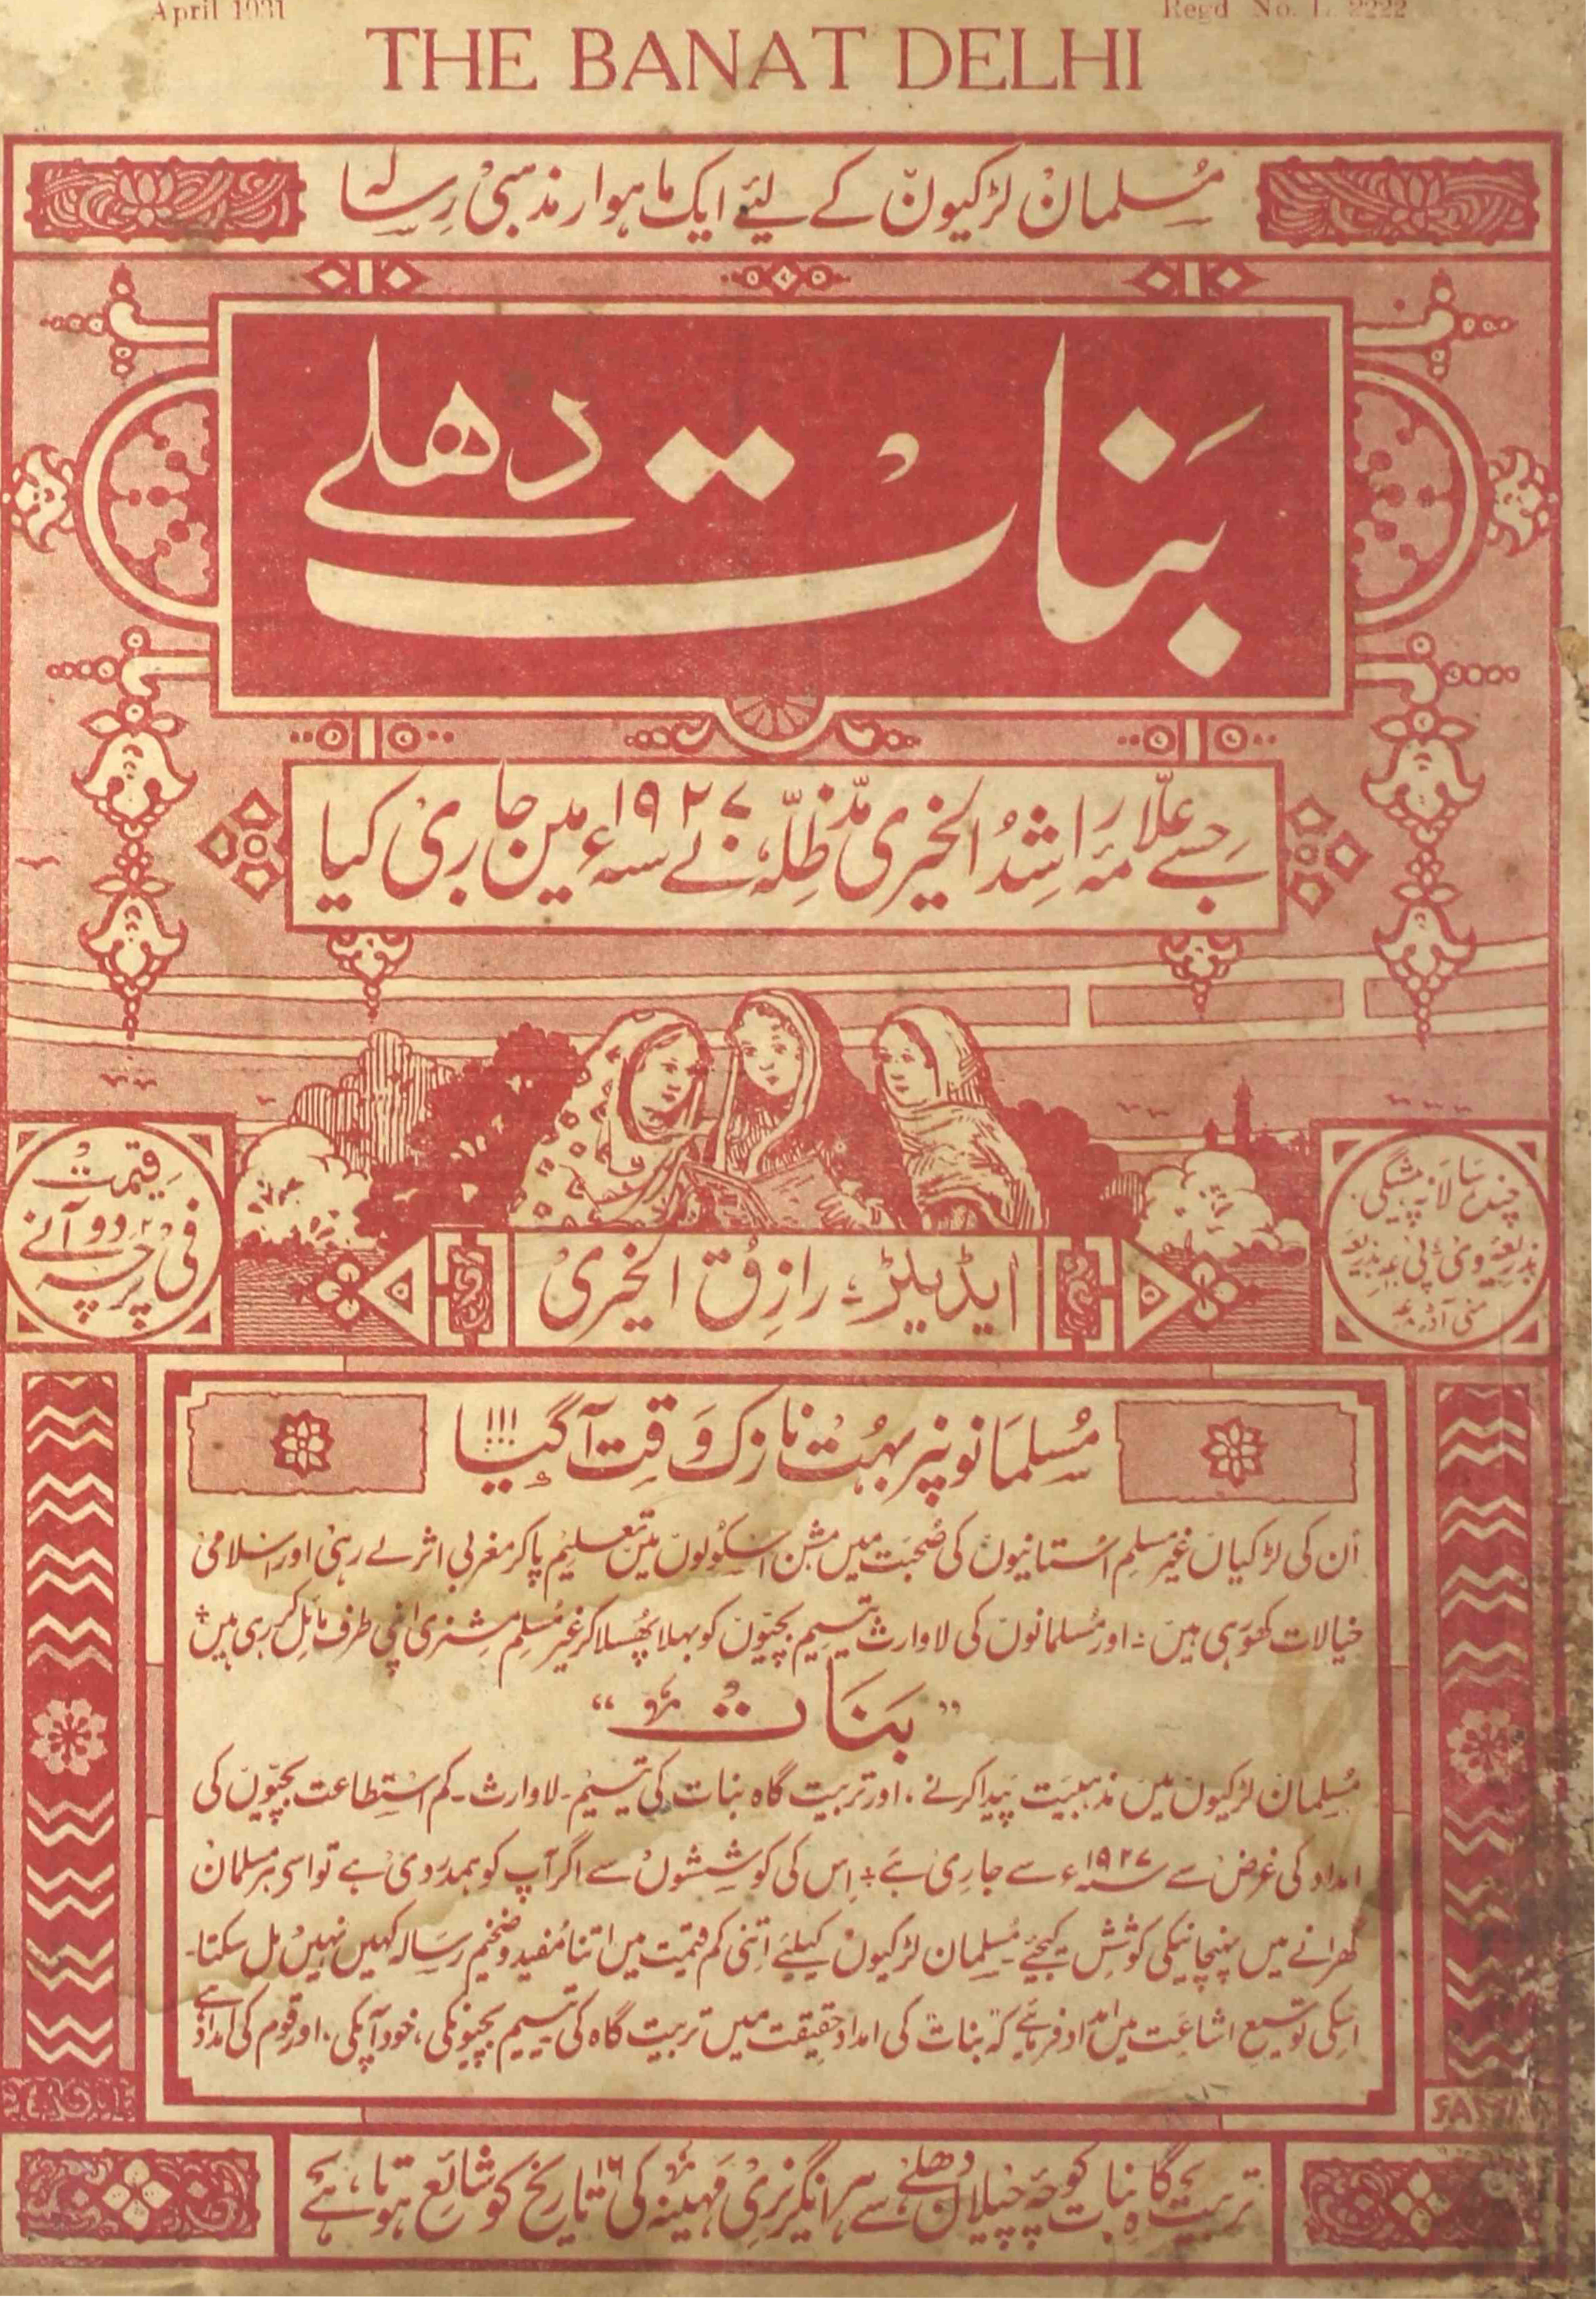 April 1931
Regd No. L. 2222
THE BANAT DELHI
مسلمان لڑکیوں کے لئے ایک ماہوار مذہبی رسالہ
بنات دھلے
جسے علامہ راشد الخیری مدظلہ نے سنہ ۱۹۲۷ء میں جاری کیا
قیمت
فی پرچہ ۲ر دو آنے
چندہ سالانہ پیشگی
بذریعہ وی پی بذریعہ
منی آڈر
ایڈیٹر: رازق الخیری
مسلمانونپر بہت نازک وقت آگیا !!!
اُن کی لڑکیاں غیر مسلم اُستانیوں کی صحبت میں مشن اسکولوں میں تعلیم پاکر مغربی اثر لے رہی اور اسلامی
خیالات کھو رہی ہیں ۔ اور مسلمانوں کی لاوارث یتیم بچیوں کو بہلا پھُسلا کر غیر مُسلم مشنری اپنی طرف مائل کر رہی ہیں
"بنات"
مسلمان لڑکیوں میں مذہبیت پیدا کرنے، اور تربیت گاہ بنات کی یتیم۔ لاوارث۔ کم استطاعت بچیوں کی
امداد کی غرض سے سنہ ۱۹۲۷ء سے جاری ہے ۔ اِس کی کوششوں سے اگر آپ کو ہمدردی ہے تو اسے ہر مسلمان
گھرانے میں پہنچانیکی کوشش کیجئے۔ مسلمان لڑکیوں کیلئے اتنی کم قیمت میں اتنا مُفید و ضخیم رسالہ کہیں نہیں مل سکتا۔
اسکی توسیع اشاعت میں امداد فرمایئے کہ بنات کی امداد حقیقت میں تربیت گاہ کی یتیم بچیونکی، خود آپکی، اور قوم کی امداد ہے
تربیت گاہ بنات کوچہ چیلان دھلے سے ہر انگریزی مہینہ کی ۱۶ تاریخ کو شائع ہوتا ہے